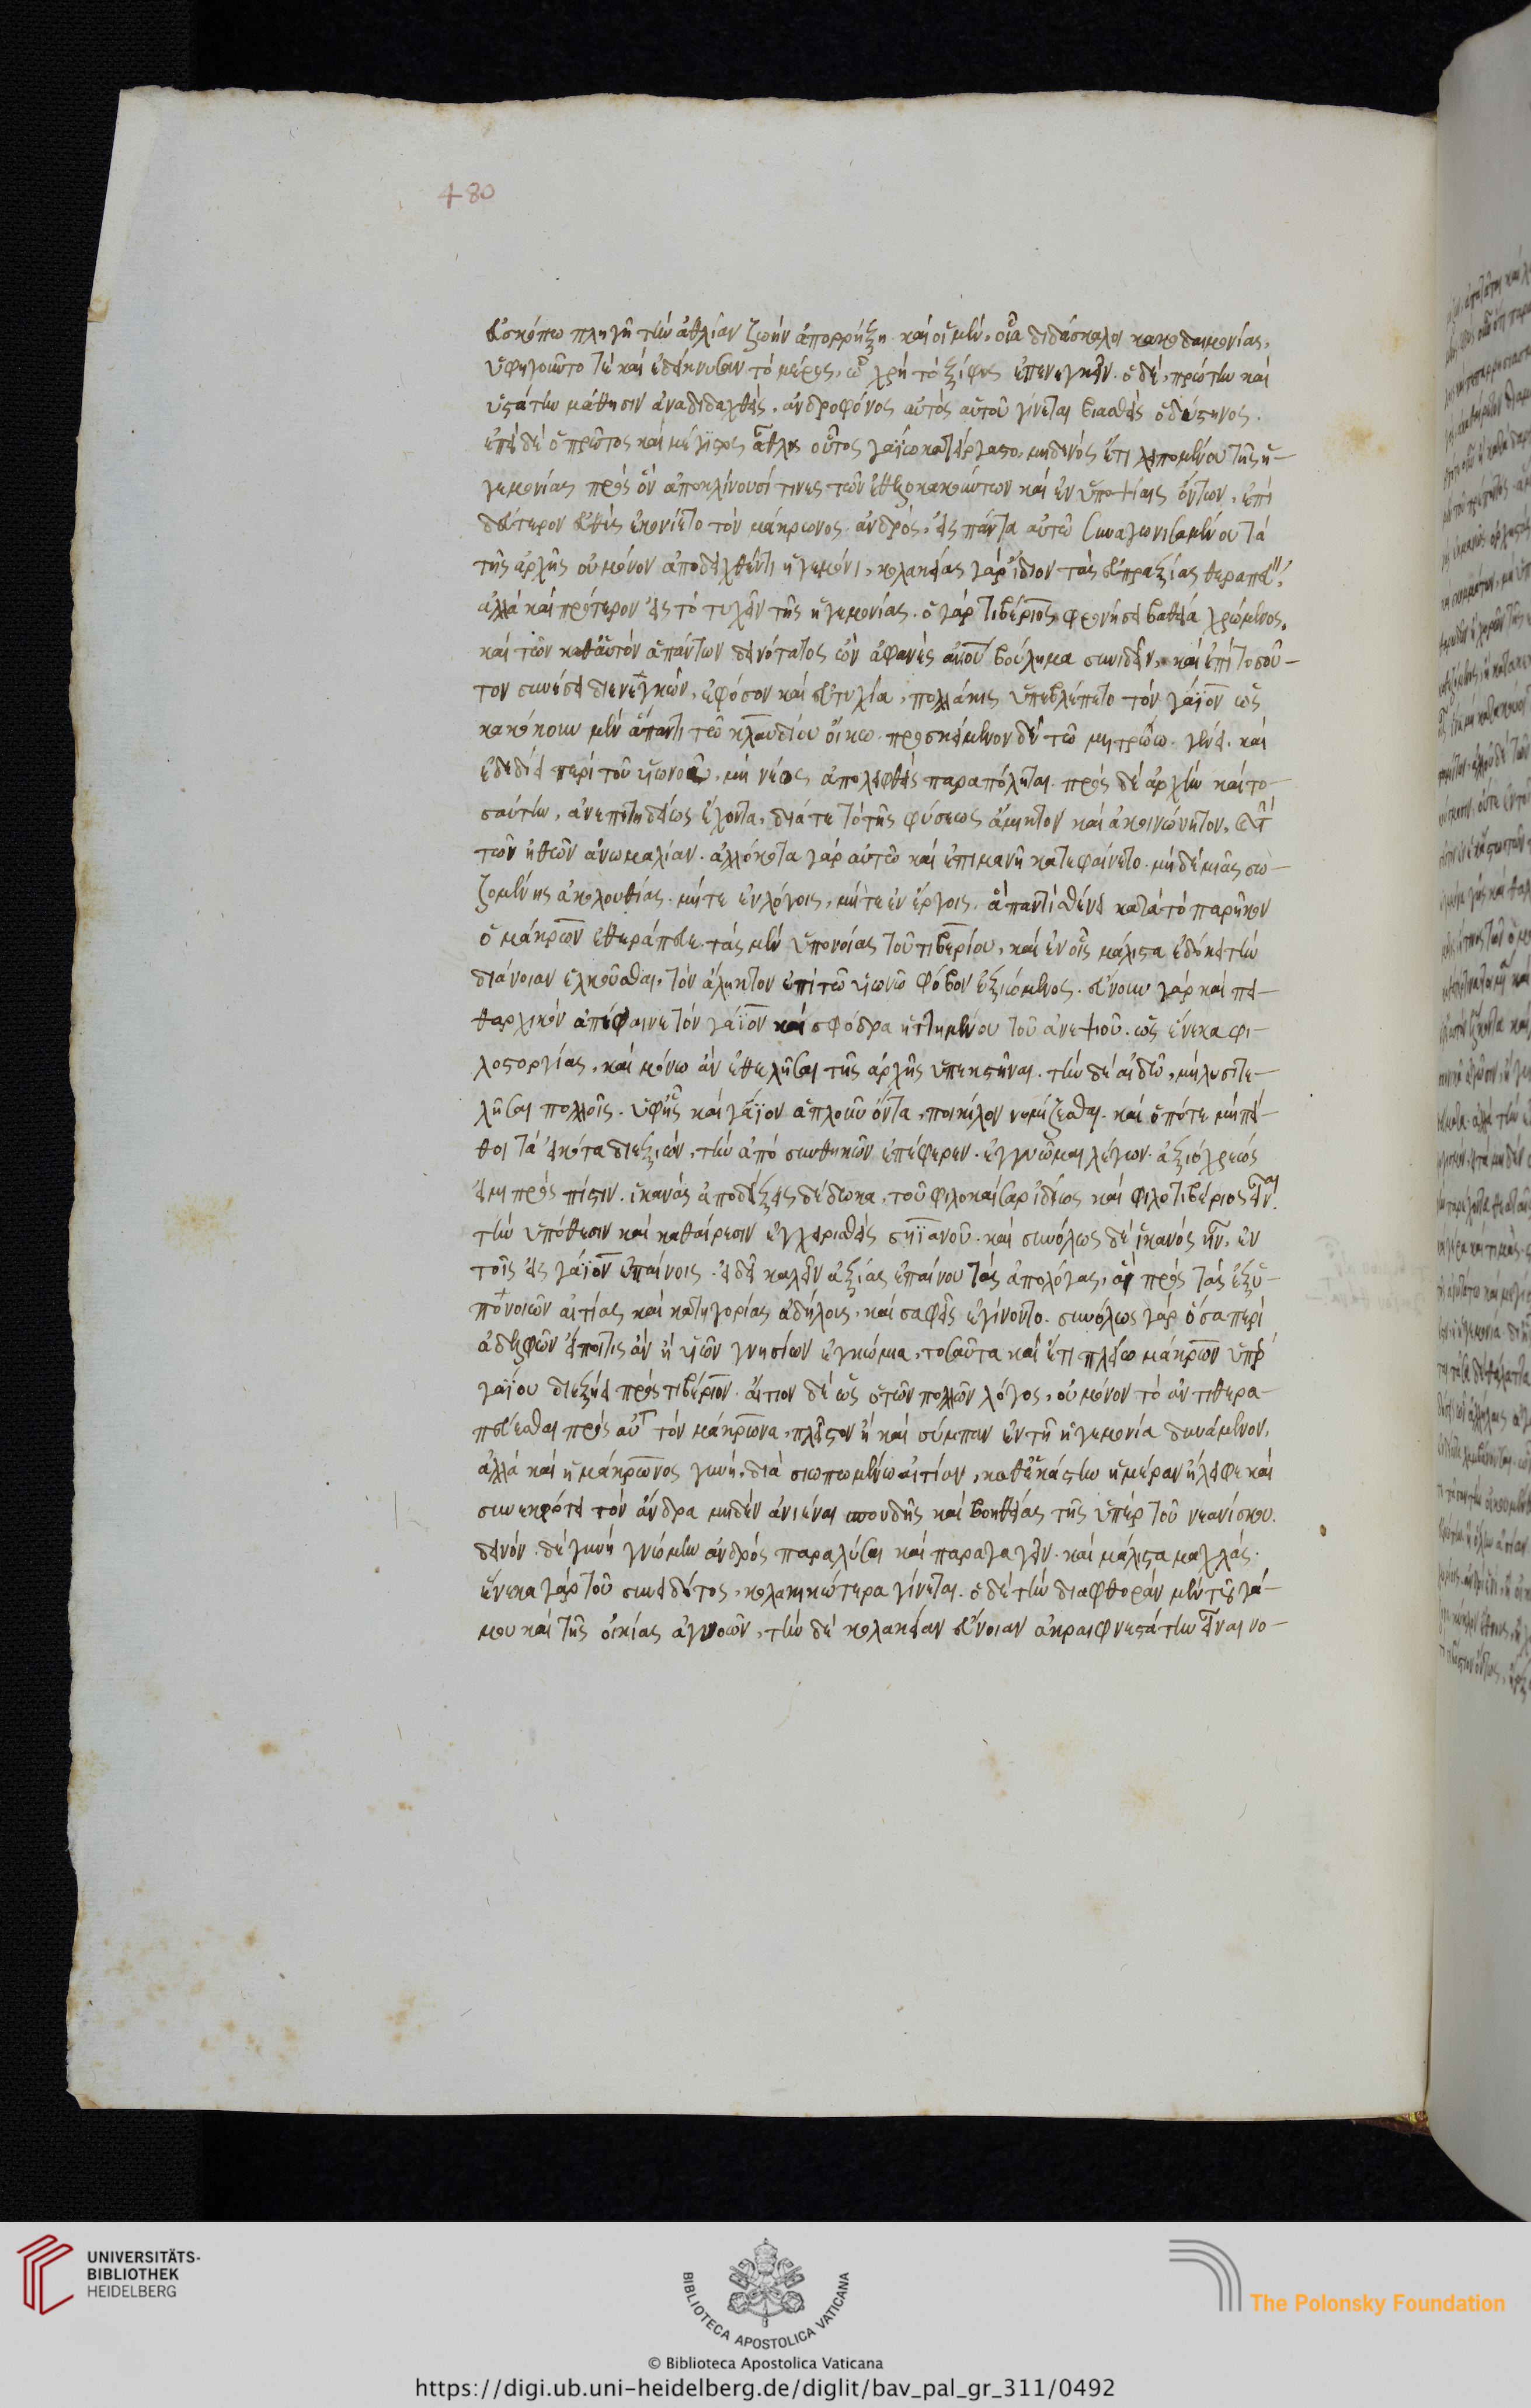 480
εὐσκόπω πληγῆ τὴν ἀθλίαν ζωὴν ἀπορρήξη καὶ οἱ μὲν, οἷα διδάσκαλοι κακοδαιμονίας,
ὑφηγοῦντό τε καὶ ἐδείκνυσαν τὸ μέρος, ὧ χρὴ τὸ ξίφος ἐπενεγκεῖν. ὁ δὲ, πρώτην καὶ
ὑστάτην μάθησιν ἀναδιδαχθεὶς, ἀνδροφόνος αὐτὸς αὑτοῦ γίνεται βιασθεὶς ὁ δύστηνος.
ἐπεὶ δὲ ὁ πρῶτος καὶ μέγιστος ἆθλος οὗτος γαΐω κατείργαστο, μηδενὸς ἔτι λειπομένου τῆς ἡ-
γεμονίας πρὸς ὃν ἀποκλίνουσί τινες τῶν ἐθελοκακούντων καὶ ἐν ὑποψίαις ὄντων, ἐπὶ
δεύτερον εὐθὺς ἐκονίετο τὸν μάκρωνος ἀνδρὸς, εἰς πάντα αὐτῶ συναγωνισαμένου τὰ
τῆς ἀρχῆς οὐ μόνον ἀποδειχθέντι ἡγεμόνι, κολακείας γὰρ ἴδιον τὰς εὐπραξίας θεραπεύ.
ἀλλὰ καὶ πρότερον εἰς τὸ τυχεῖν τῆς ἡγεμονίας. ὁ γὰρ τιβέριος φρονήσει βαθεία χρώμενος,
καὶ τῶν καθ' αὑτὸν ἁπάντων δεινότατος ὢν ἀφανὲς ἀν̅ου βούλημα συνιδεῖν, καὶ ἐπὶ τοσοῦ-
τον συνέσει διενεγκὼν, ἐφόσον καὶ εὐτυχία, πολλάκις ὑπεβλέπετο τὸν γάϊον ὡς
κακόνουν μὲν ἅπαντι τῶ κλαυδίου οἴκω. προσκείμενον δὲ τῶ μητρώω γένει. καὶ
ἐδεδίει περὶ τοῦ υἱωνοῦ, μὴ νέος ἀπολειφθεὶς παραπόληται. πρὸς δὲ ἀρχὴν καὶ το-
σαύτην, ἀνεπιτηδείως ἔχοντα, διά τε τὸ τῆς φύσεως ἄμικτον καὶ ἀκοινώνητον, καὶ τὴν
τῶν ἠθῶν ἀνωμαλίαν. ἀλλόκοτα γὰρ αὐτῶ καὶ ἐπιμανῆ κατεφαίνετο. μηδεμιᾶς σω-
ζομένης ἀκολουθίας. μήτε ἐν λόγοις, μήτε ἐν ἔργοις. ἃ παντὶ σθένει κατὰ τὸ παρῆκον
ὁ μάκρων ἐθεράπευε. τὰς μὲν ὑπονοίας τοῦ τιβερίου, καὶ ἐν οἷς μάλιστα ἐδόκει τὴν
διάνοιαν ἑλκοῦσθαι, τὸν ἄληκτον ἐπὶ τῶ υἱωνῶ φόβον ἐξιώμενος. εὔνουν γὰρ καὶ πει-
θαρχικὸν ἀπέφαινε τὸν γάϊον καὶ σφόδρα ἡττημένον τοῦ ἀνεψιοῦ. ὡς ἕνεκα φι-
λοστοργίας, καὶ μόνω ἂν ἐθελῆσαι τῆς ἀρχῆς ὑπεκστῆναι. τὴν δὲ αἰδῶ, μὴ λυσιτε-
λῆσαι πολλοῖς. ὑφ' ἧς καὶ γάϊον ἁπλοῦν ὄντα, ποικίλον νομίζεσθαι. καὶ ὁπότε μὴ πεί-
θοι τὰ εἰκότα διεξιὼν, τὴν ἀπὸ συνθηκῶν ἐπέφερεν. ἐγγυῶμαι λέγων. ἀξιόχρεώς
εἰμι πρὸς πίστιν. ἱκανὰς ἀποδείξεις δέδωκα, τοῦ φιλοκαῖσαρ ἰδίως καὶ φιλοτιβέριος εἶναι.
τὴν ὑπόθεσιν καὶ καθαίρεσιν ἐγχειρισθεὶς σηϊανοῦ. καὶ συνόλως δὲ ἱκανὸς ἦν, ἐν
τοῖς εἰς γάϊον ἐπαίνοις. εἰ δεῖ καλεῖν ἀξίας ἐπαίνου τὰς ἀπολογίας, αἳ πρὸς τὰς ἐξ ὑ-
πονοιῶν αἰτίας καὶ κατηγορίας ἀδήλους, καὶ σαφεῖς ἐγίνοντο. συνόλως γὰρ ὅσα περὶ
ἀδελφῶν εἴποι τις ἂν ἢ υἱῶν γνησίων ἐγκώμια, τοσαῦτα καὶ ἔτι πλείω μάκρων ὑπὲρ
γαΐου διεξήει πρὸς τιβέριον. αἴτιον δὲ ὡς ὁ τῶν πολλῶν λόγος, οὐ μόνον τὸ ἀντιθερα-
πεύεσθαι πρὸς αὐτ τὸν μάκρωνα, πλεῖστον ἢ καὶ σύμπαν ἐν τῆ ἡγεμονία δυνάμενον,
ἀλλὰ καὶ ἡ μάκρωνος γυνὴ, διὰ σιωπωμένην αἰτίαν, καθ' ἑκάστην ἡμέραν ἤλειφε καὶ
συνεκρότει τὸν ἄνδρα μηδὲν ἀνιέναι σπουδῆς καὶ βοηθείας τῆς ὑπὲρ τοῦ νεανίσκου.
δεινὸν δὲ γυνὴ γνώμην ἀνδρὸς παραλῦσαι καὶ παραγαγεῖν. καὶ μάλιστα μαχλάς.
ἕνεκα γὰρ τοῦ συνειδότος, κολακικωτέρα γίνεται. ὁ δὲ τὴν διαφθορὰν μὲν τοῦ γά-
μου καὶ τῆς οἰκίας ἀγνοῶν, τὴν δὲ κολακείαν εὔνοιαν ἀκραιφνεστάτην εἶναι νο-
UNIVERSITÄTS-
BIBLIOTHEK
HEIDELBERG
BIBLIOTECA APOSTOLICA VATICANA
© Biblioteca Apostolica Vaticana
The Polonsky Foundation
https://digi.ub.uni-heidelberg.de/diglit/bav_pal_gr_311/0492